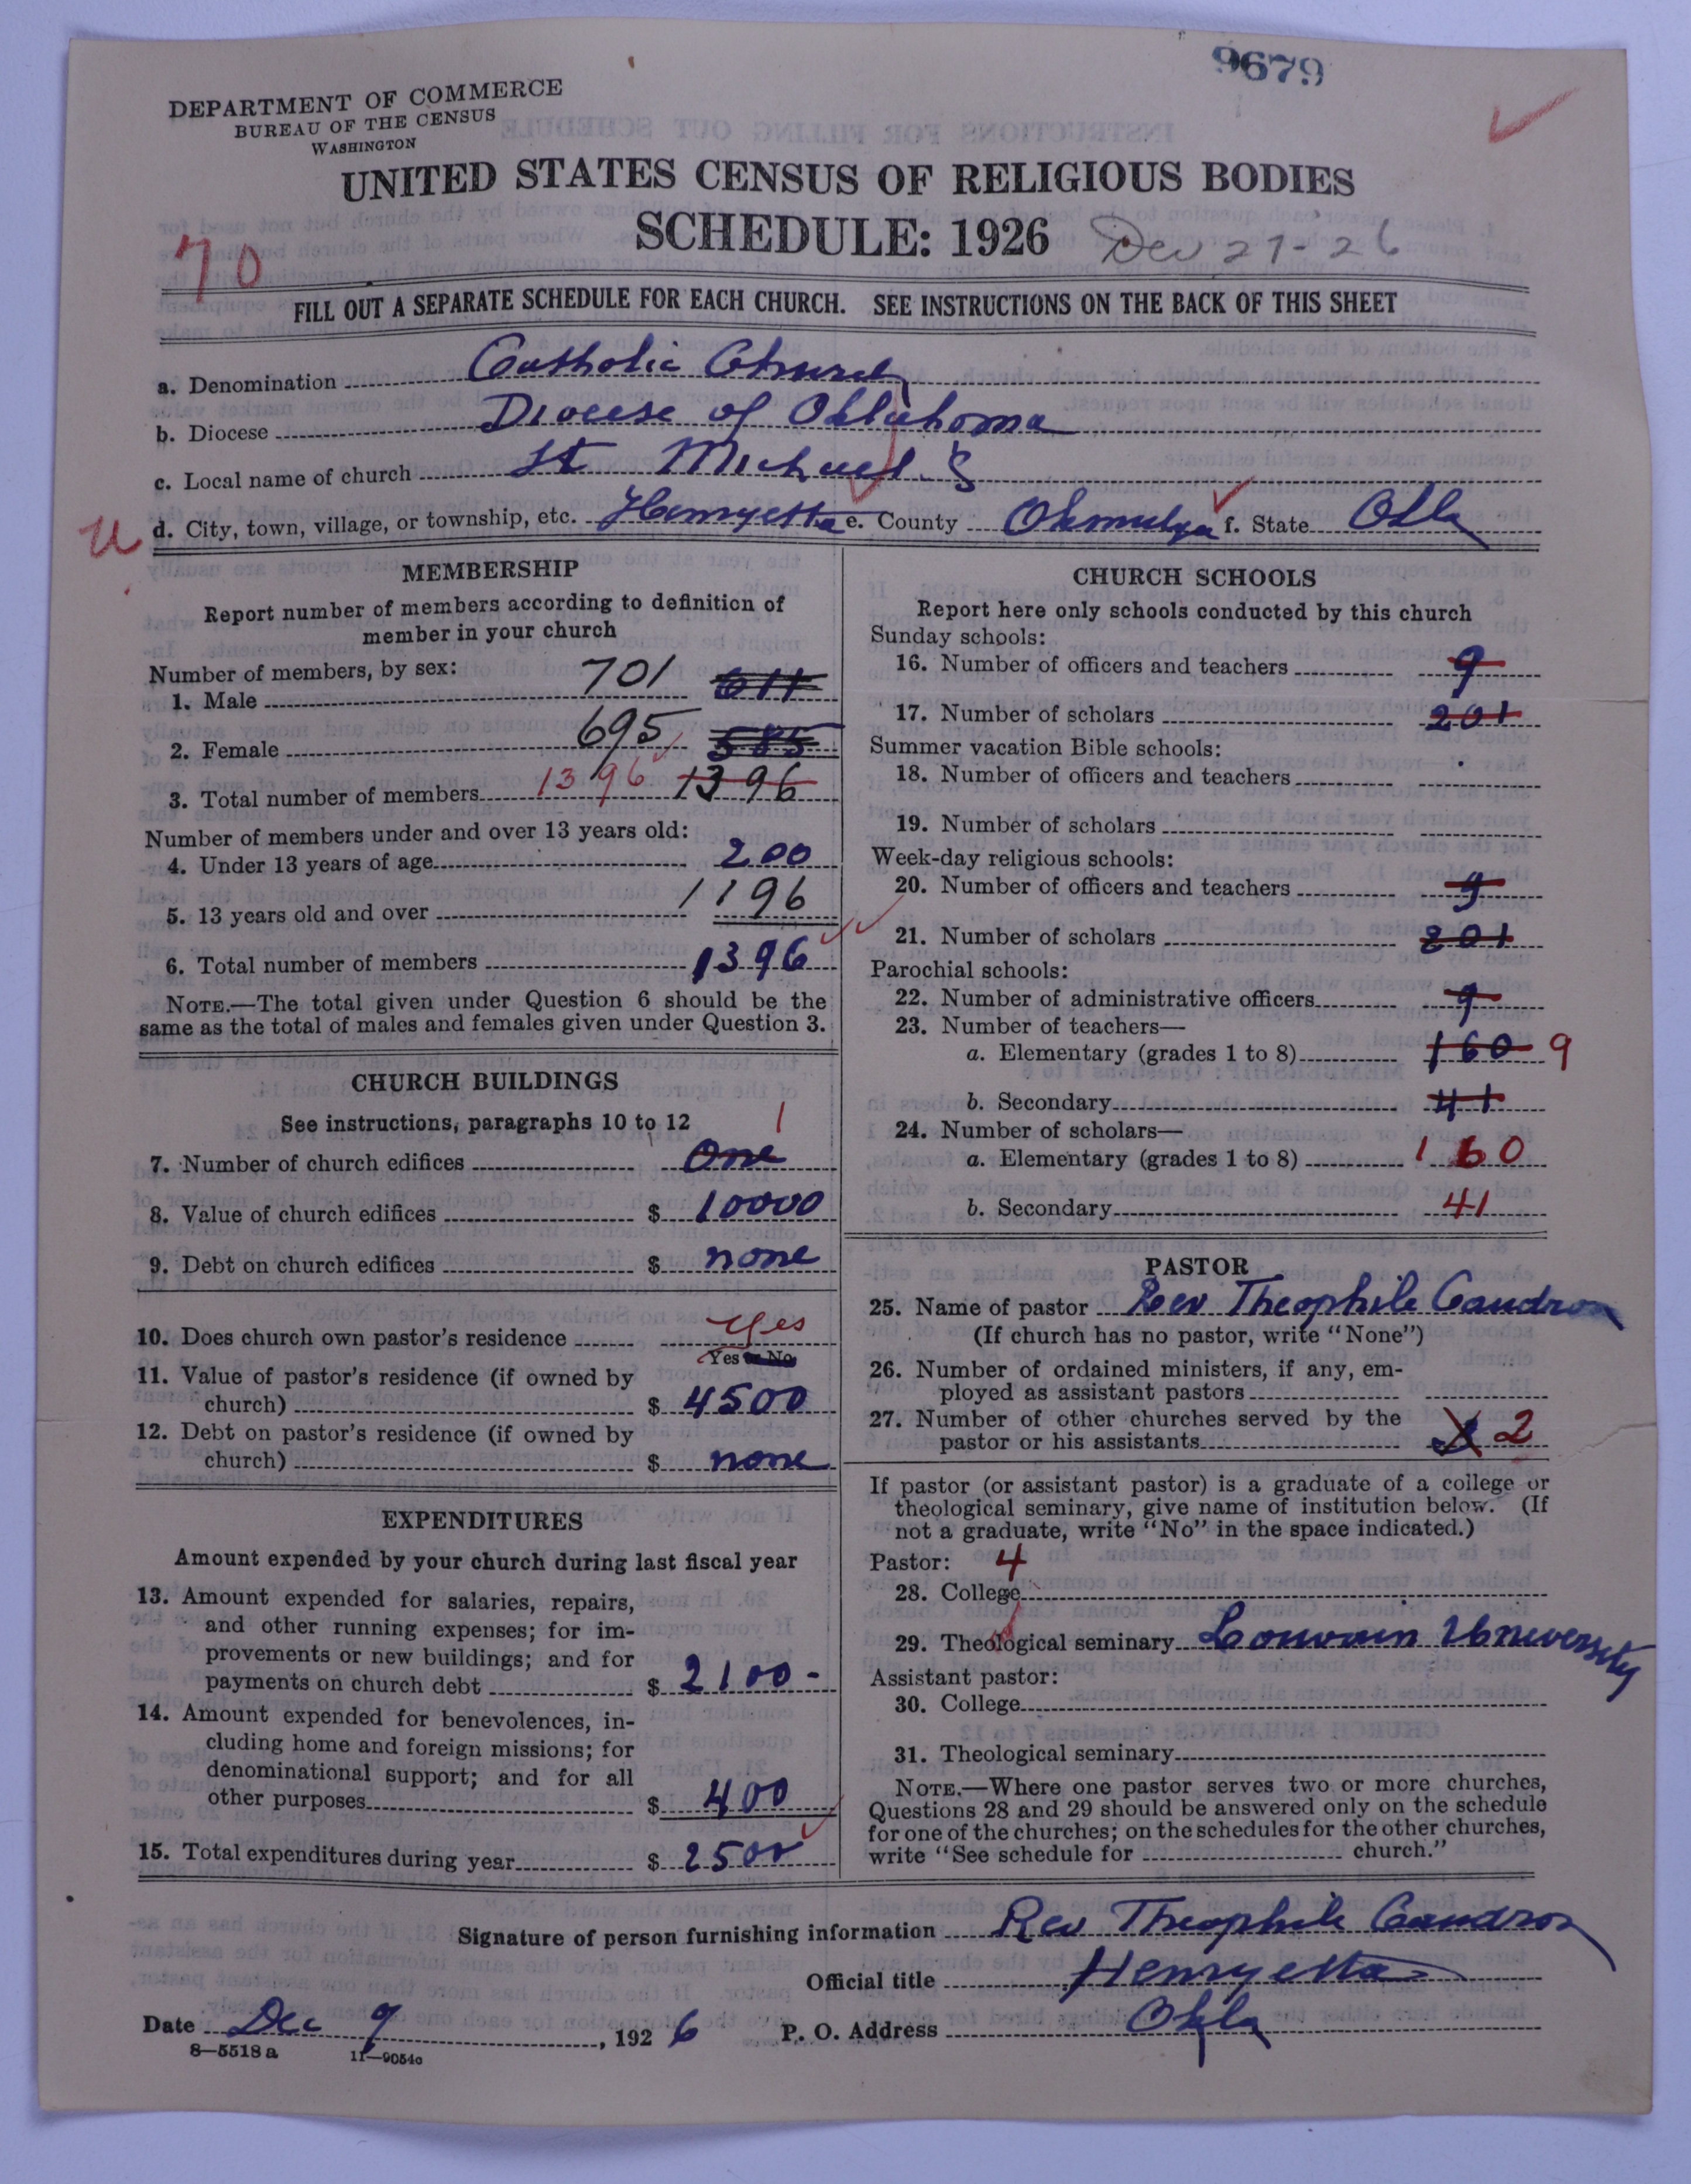 9679
DEPARTMENT OF COMMERCE
BUREAU OF THE CENSUS
WASHINGTON
UNITED STATES CENSUS OF RELIGIOUS BODIES
SCHEDULE: 1926
70
FILL OUT A SEPARATE SCHEDULE FOR EACH CHURCH. SEE INSTRUCTIONS ON THE BACK OF THIS SHEET
a. Denomination Catholic Church
b. Diocese Diocese of Oklahoma
c. Local name of church St Michael's
d. City, town, village, or township, etc. Henryetta e. County Okmulgee f. State Okla
MEMBERSHIP
Report number of members according to definition of
member in your church
Number of members, by sex:
1. Male 701 611
2. Female 695 585
3. Total number of members 1396 1396
Number of members under and over 13 years old:
4. Under 13 years of age 200
5. 13 years old and over 1196
6. Total number of members 1396
NOTE.—The total given under Question 6 should be the
same as the total of males and females given under Question 3.
CHURCH BUILDINGS
See instructions, paragraphs 10 to 12
1
7. Number of church edifices One
8. Value of church edifices $ 10000
9. Debt on church edifices $ none
10. Does church own pastor's residence yes
Yes or No
11. Value of pastor's residence (if owned by
church) $ 4500
12. Debt on pastor's residence (if owned by
church) $ none
EXPENDITURES
Amount expended by your church during last fiscal year
13. Amount expended for salaries, repairs,
and other running expenses; for im-
provements or new buildings; and for
payments on church debt $ 2100-
14. Amount expended for benevolences, in-
cluding home and foreign missions; for
denominational support; and for all
other purposes $ 400
15. Total expenditures during year $ 2500
CHURCH SCHOOLS
Report here only schools conducted by this church
Sunday schools:
16. Number of officers and teachers 9
17. Number of scholars 201
Summer vacation Bible schools:
18. Number of officers and teachers
19. Number of scholars
Week-day religious schools:
20. Number of officers and teachers 9
21. Number of scholars 201
Parochial schools:
22. Number of administrative officers 9
23. Number of teachers—
a. Elementary (grades 1 to 8) 160 9
b. Secondary 41
24. Number of scholars—
a. Elementary (grades 1 to 8) 160
b. Secondary 41
PASTOR
25. Name of pastor Rev Theophile Caudron
(If church has no pastor, write "None")
26. Number of ordained ministers, if any, em-
ployed as assistant pastors
27. Number of other churches served by the
pastor or his assistants 2
If pastor (or assistant pastor) is a graduate of a college or
theological seminary, give name of institution below. (If
not a graduate, write "No" in the space indicated.)
Pastor: 4
28. College
29. Theological seminary Louvain University
Assistant pastor:
30. College
31. Theological seminary
NOTE.—Where one pastor serves two or more churches,
Questions 28 and 29 should be answered only on the schedule
for one of the churches; on the schedules for the other churches,
write "See schedule for church."
Signature of person furnishing information Rev Theophile Caudron
Official title Henryetta
Date Dec 9, 1926 P. O. Address Okla
8—5518a 11—9054c